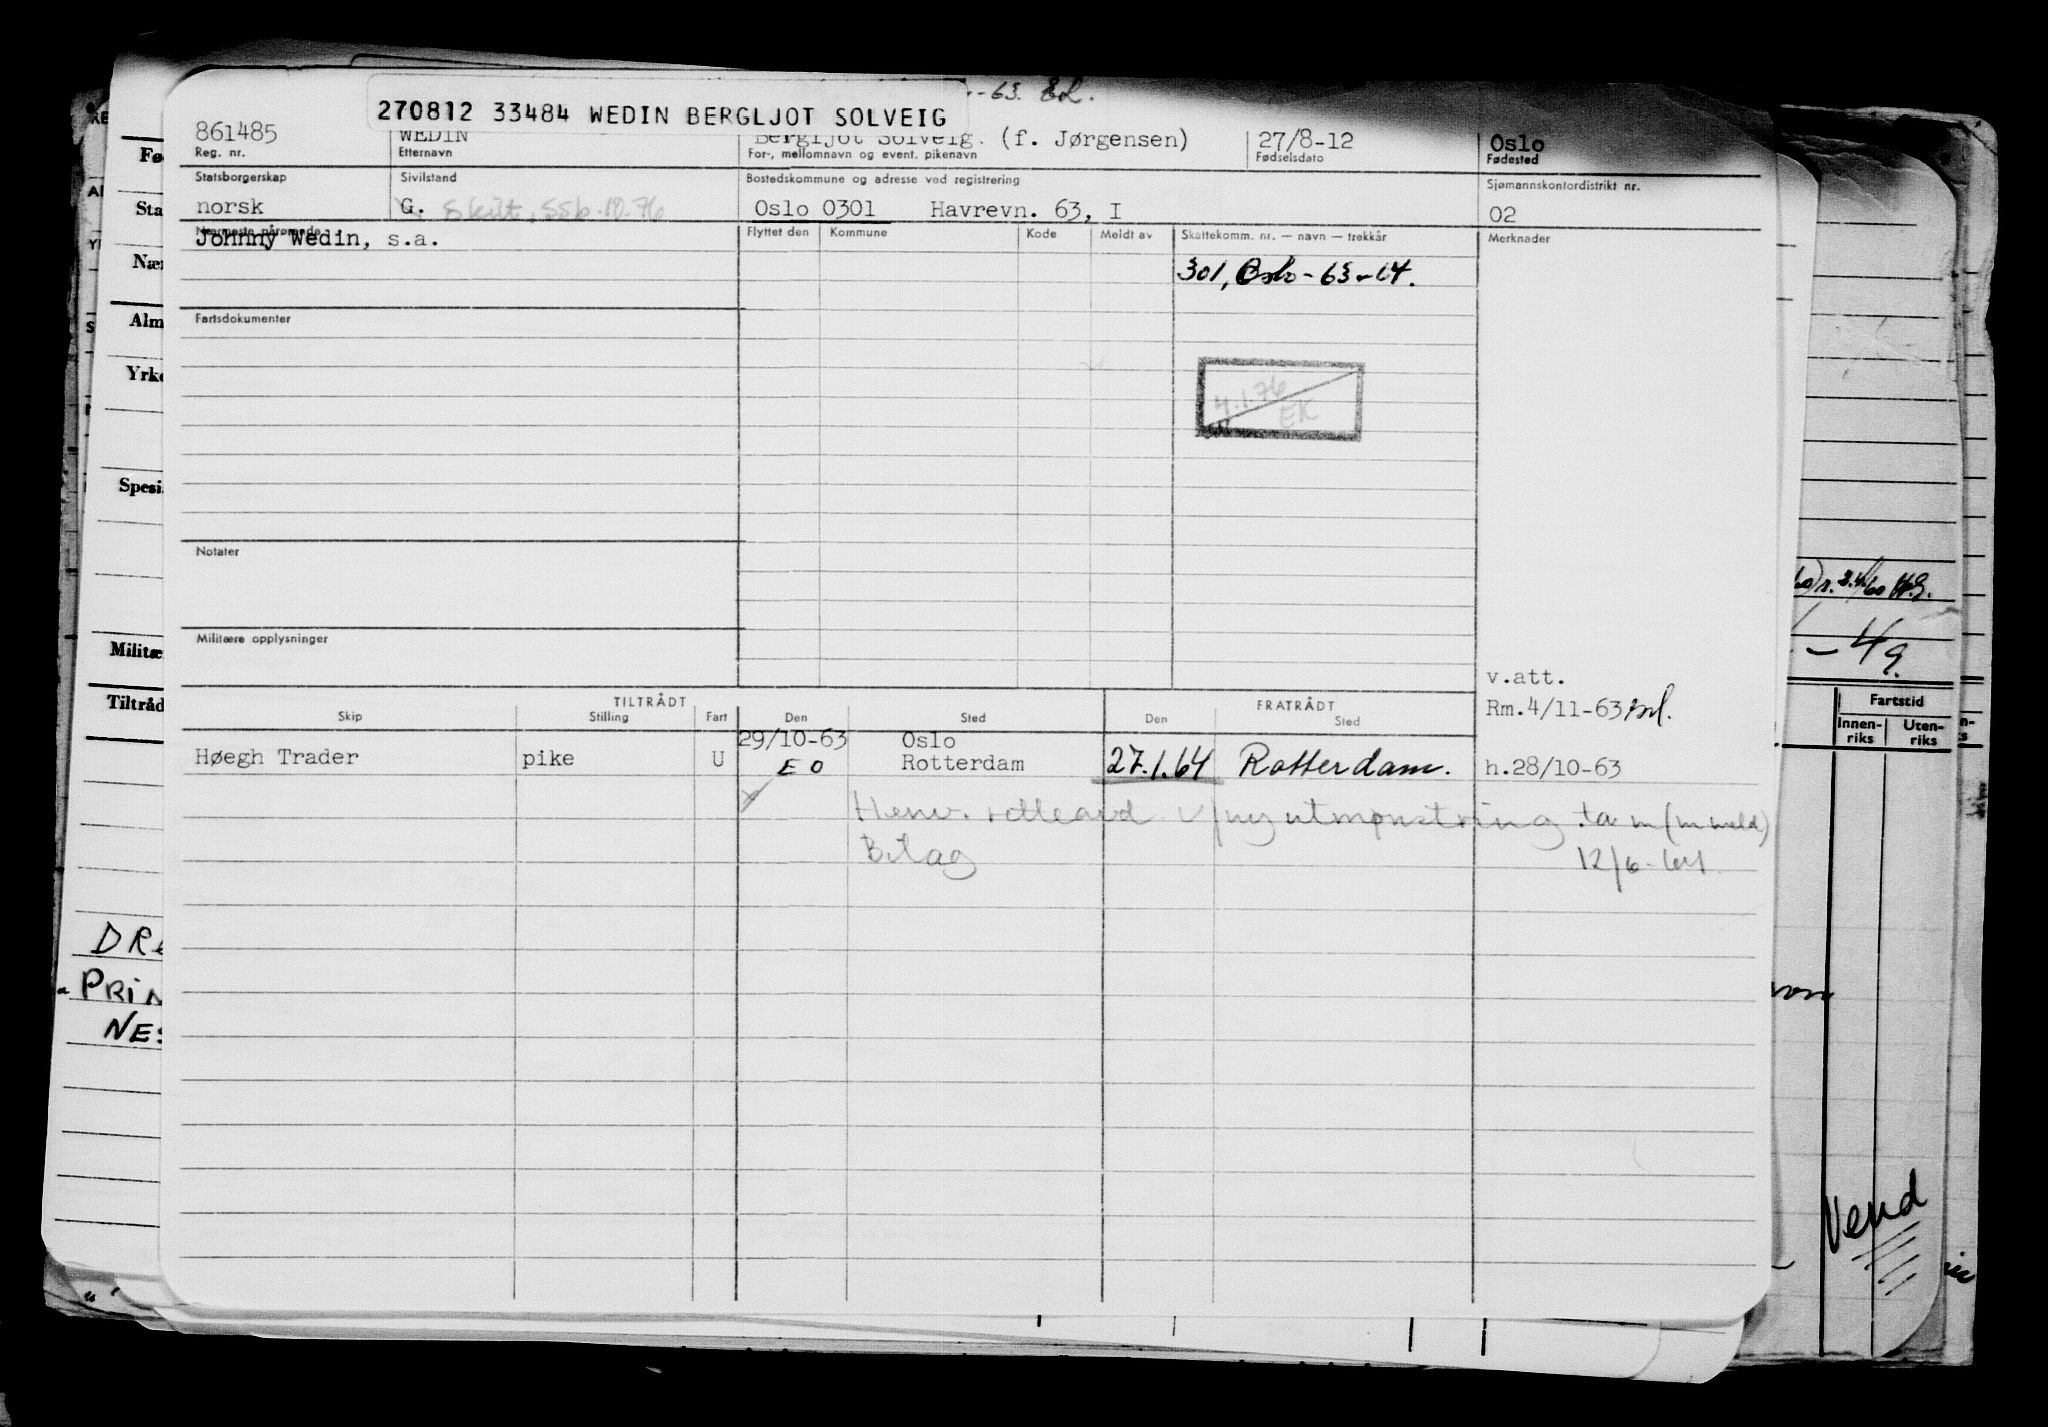 -63. EL.
270812 33484 WEDIN BERGLJOT SOLVEIG
861485 WEDIN Bergljot Solveig. (f. Jørgensen) 27/8-12 Oslo
Reg. nr. Etternavn For-, mellomnavn og event. pikenavn Fødselsdato Fødested
Statsborgerskap Sivilstand Bostedskommune og adresse ved registrering Sjømannskontordistrikt nr.
norsk G. Skilt, SSb. 10.76 Oslo 0301 Havrevn. 63, I 02
Nærmeste pårørende Flyttet den Kommune Kode Meldt av Skattekomm. nr. — navn — trekkår Merknader
Johnny Wedin, s.a.
301, Oslo - 63 - 64.
Fartsdokumenter
4.1.76
EK
Notater
Militære opplysninger
v.att.
Rm.4/11-63
TILTRÅDT FRATRÅDT
Skip Stilling Fart Den Sted Den Sted
Høegh Trader pike U 29/10-63 Oslo 27.1.64 Rotterdam. h.28/10-63
EO Rotterdam
Henv. rettleavd. v/ny utmønstring ta m (m meld)
Bilag 12/6-64
Fø
Sta
Nær
Alm
Yrke
Spesi
Militæ
Tiltråd
DR
PRIN
NES
2.4/60 H.G.
- 49.
Fartstid
Innen-
riks
Uten-
riks
Vend